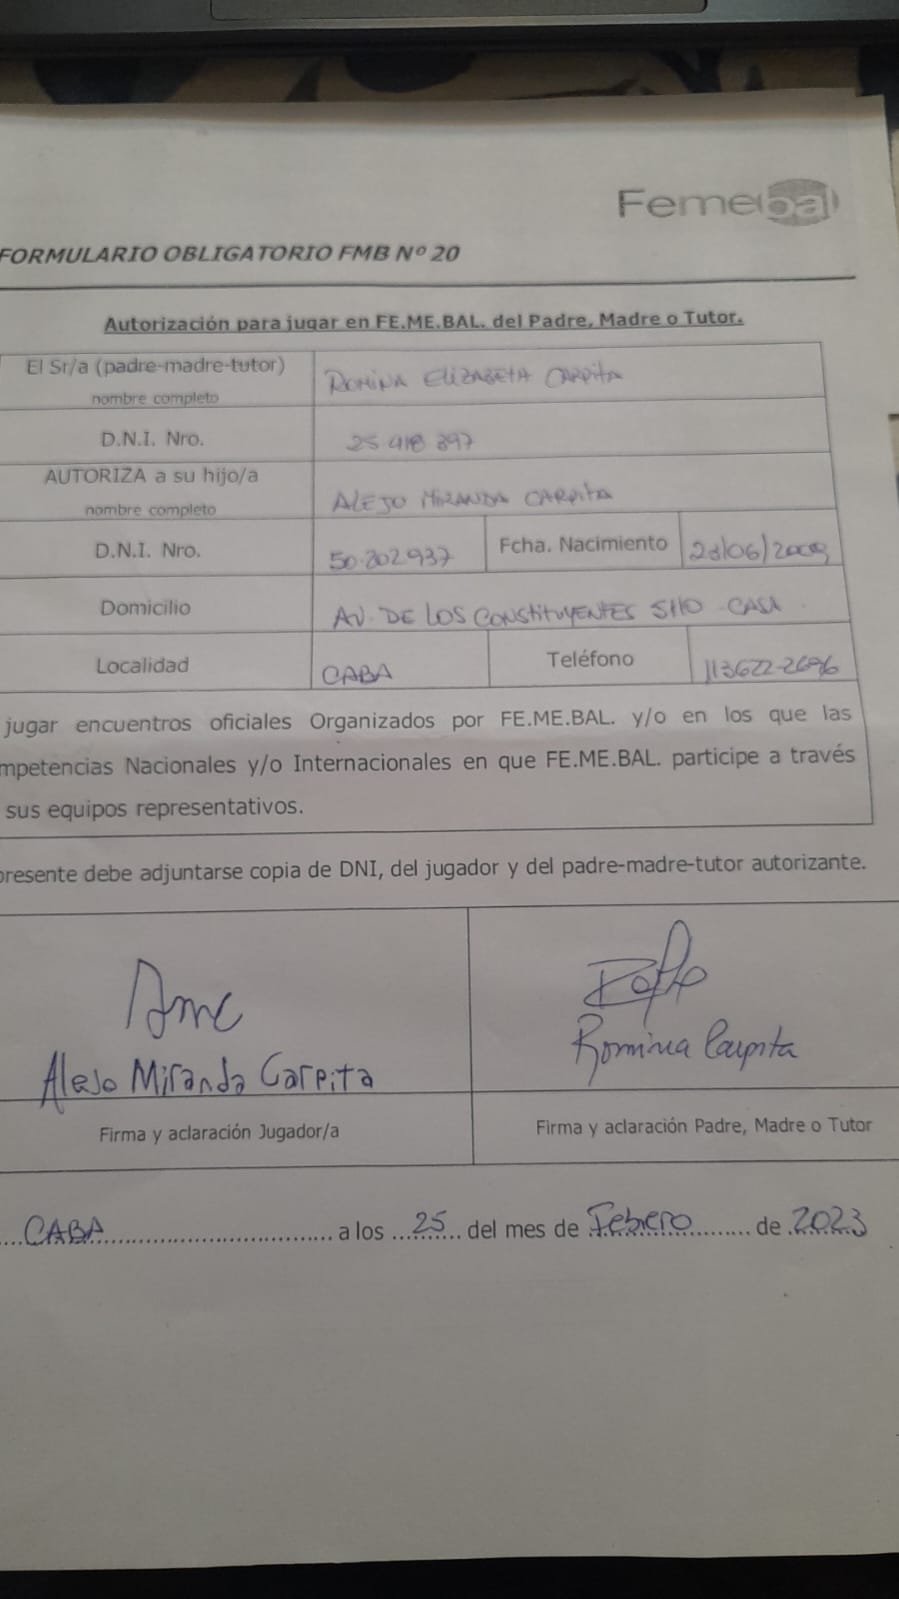 Femebal
FORMULARIO OBLIGATORIO FMB Nº 20
Autorización para jugar en FE.ME.BAL. del Padre, Madre o Tutor.
El Sr/a (padre-madre-tutor)
nombre completo
ROMINA ELIZABETA CARPITA
D.N.I. Nro.
25 418 397
AUTORIZA a su hijo/a
nombre completo
ALEJO MIRANDA CARPITA
D.N.I. Nro.
50.202.937
Fcha. Nacimiento
23/06/2009
Domicilio
AV. DE LOS CONSTITUYENTES 5110 CASA
Localidad
CABA
Teléfono
jugar encuentros oficiales Organizados por FE.ME.BAL. y/o en los que las
mpetencias Nacionales y/o Internacionales en que FE.ME.BAL. participe a través
sus equipos representativos.
presente debe adjuntarse copia de DNI, del jugador y del padre-madre-tutor autorizante.
AMC
Alejo Miranda Carpita
Romina Carpita
Firma y aclaración Jugador/a
Firma y aclaración Padre, Madre o Tutor
CABA a los 25 del mes de Febrero de 2023